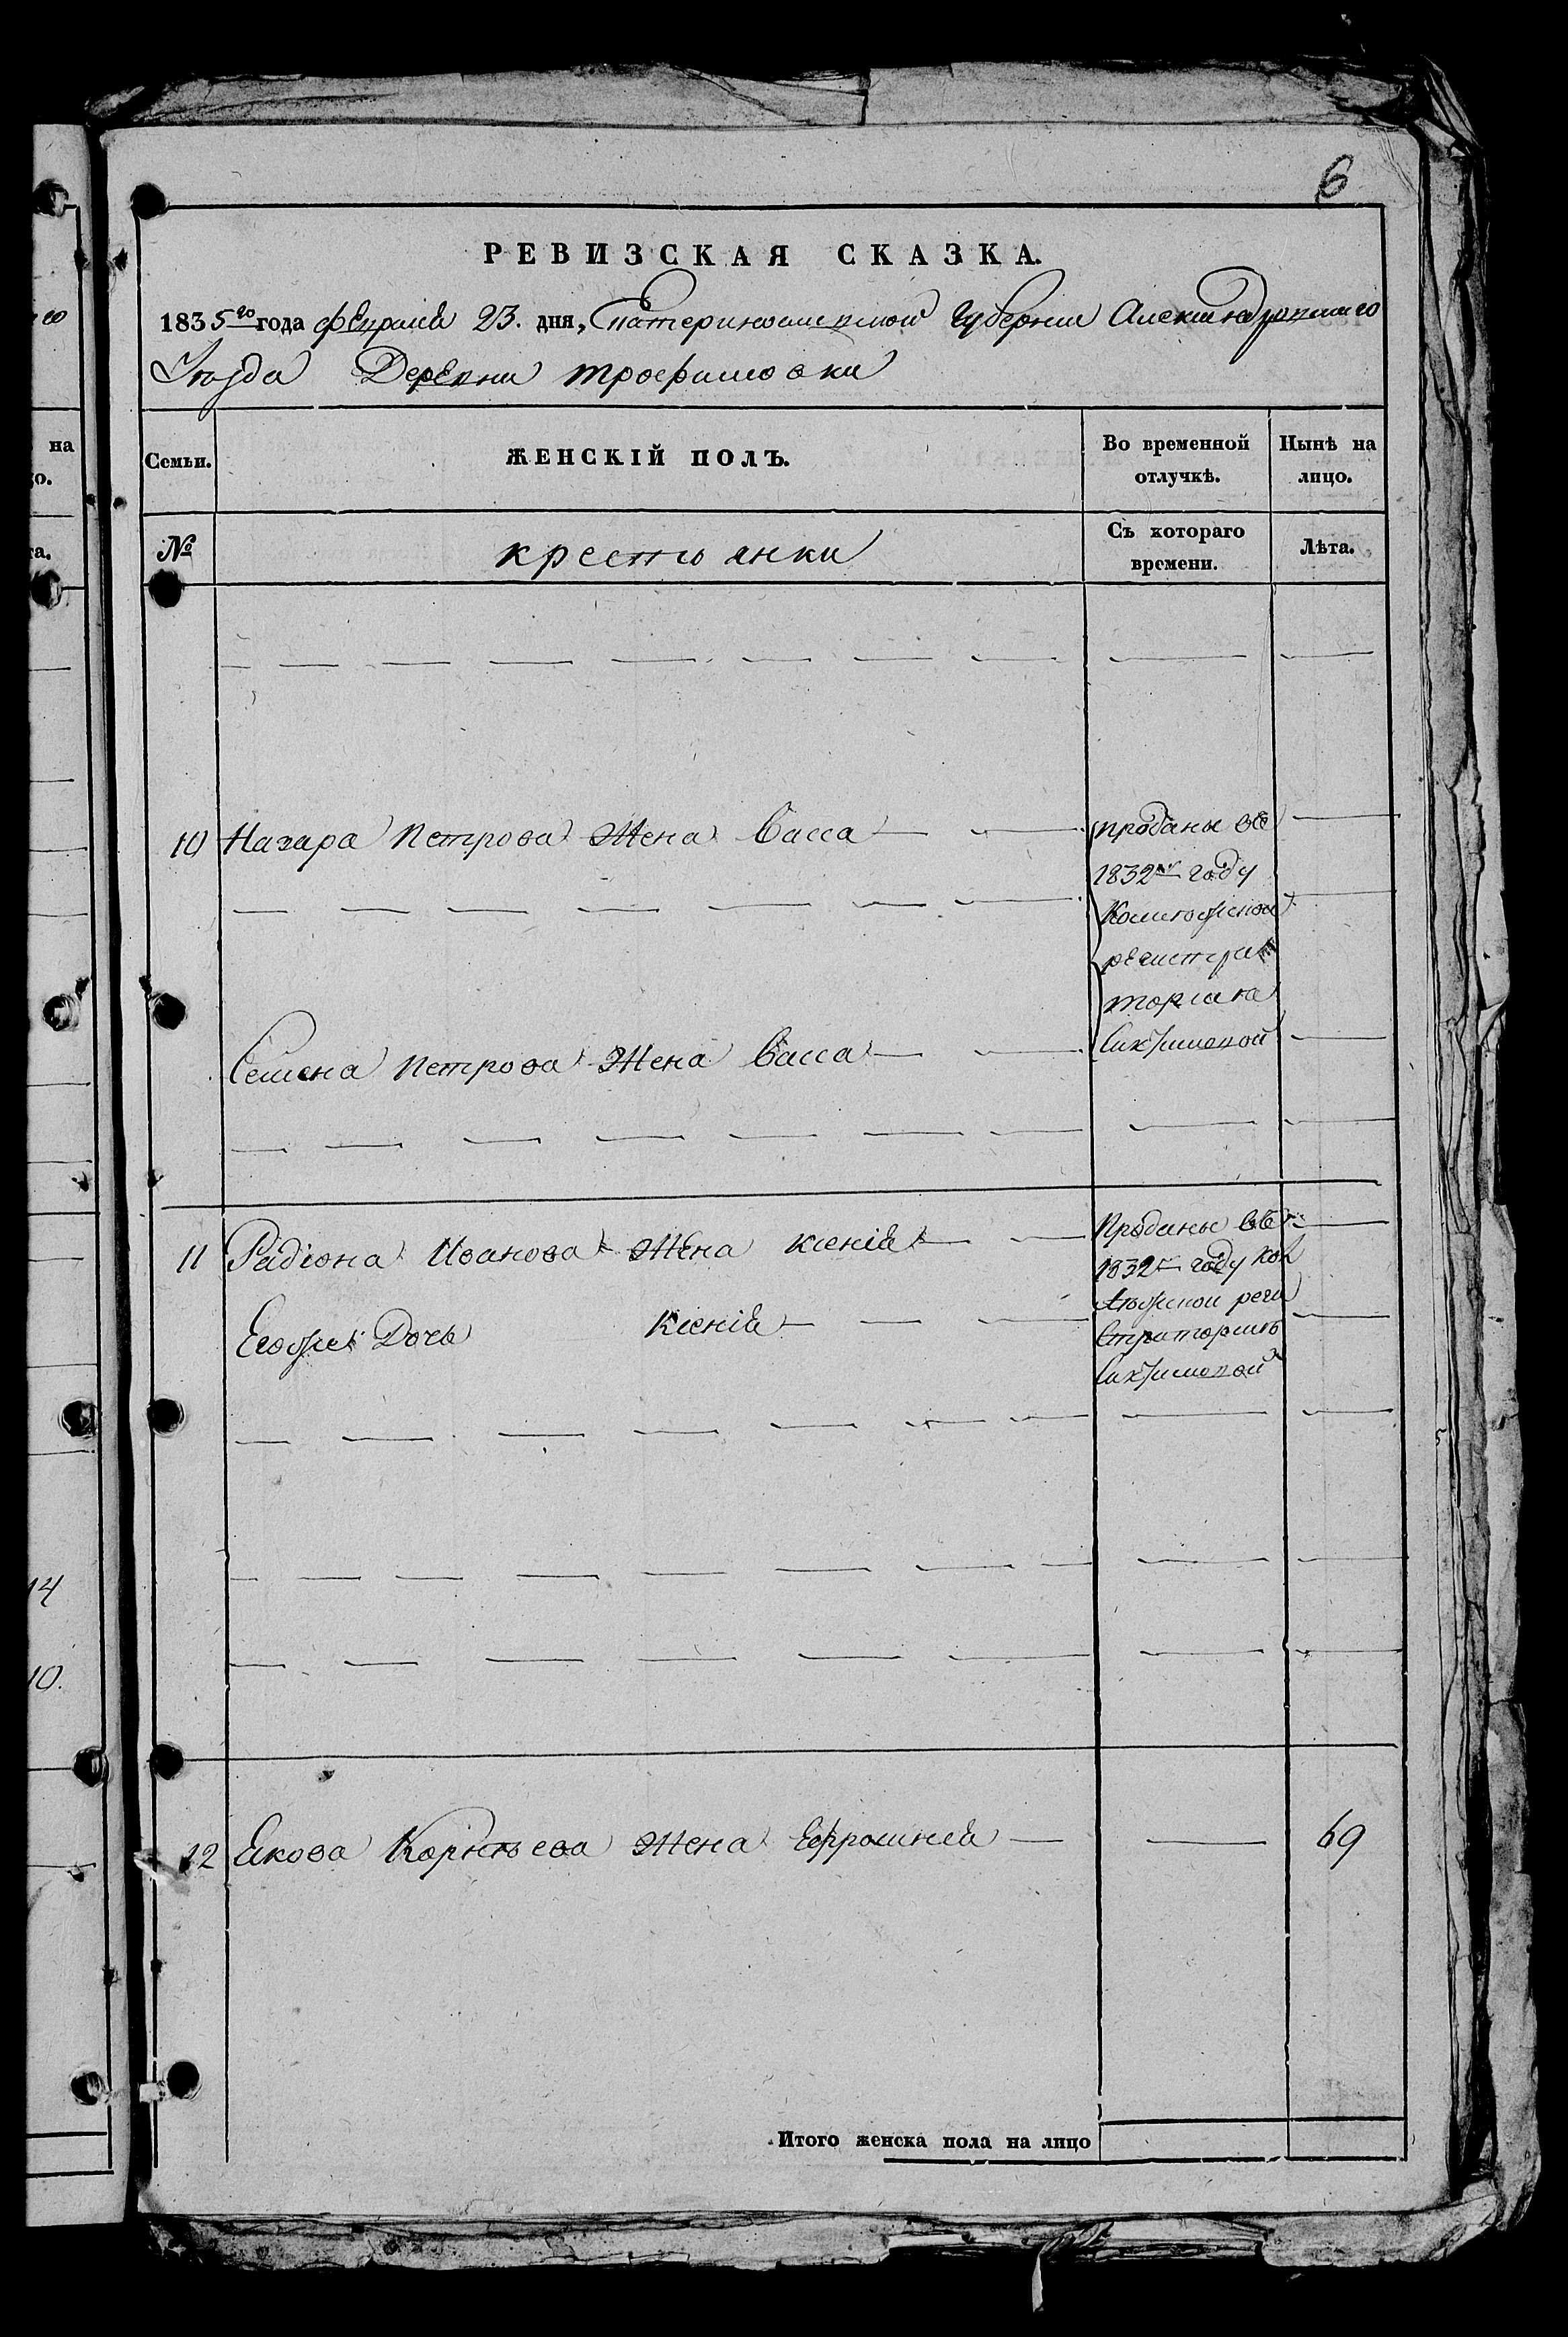 6
РЕВИЗСКАЯ СКАЗКА.
1835го года февраля 23. дня, Екатеринославской губернии Александровскаго
Уезда Деревни трофимовки
Семьи. ЖЕНСКІЙ ПОЛЪ. Во временной отлучкѣ. Нынѣ на лицо.
№ крестьянки Съ котораго времени. Лѣта.
10 Назара Петрова Жена Васса
проданы въ
1832м году
Колежской
регистра
торша
Семена Петрова Жена Васса
11 Радіона Иванова Жена Ксенія
Проданы въ
1832м году кол
Егожъ Дочь Ксенія
лежской реги
страторше
12 Якова Корнеева Жена Ефросинея 69
Итого женска пола на лицо
на
о.
та.
14
10.